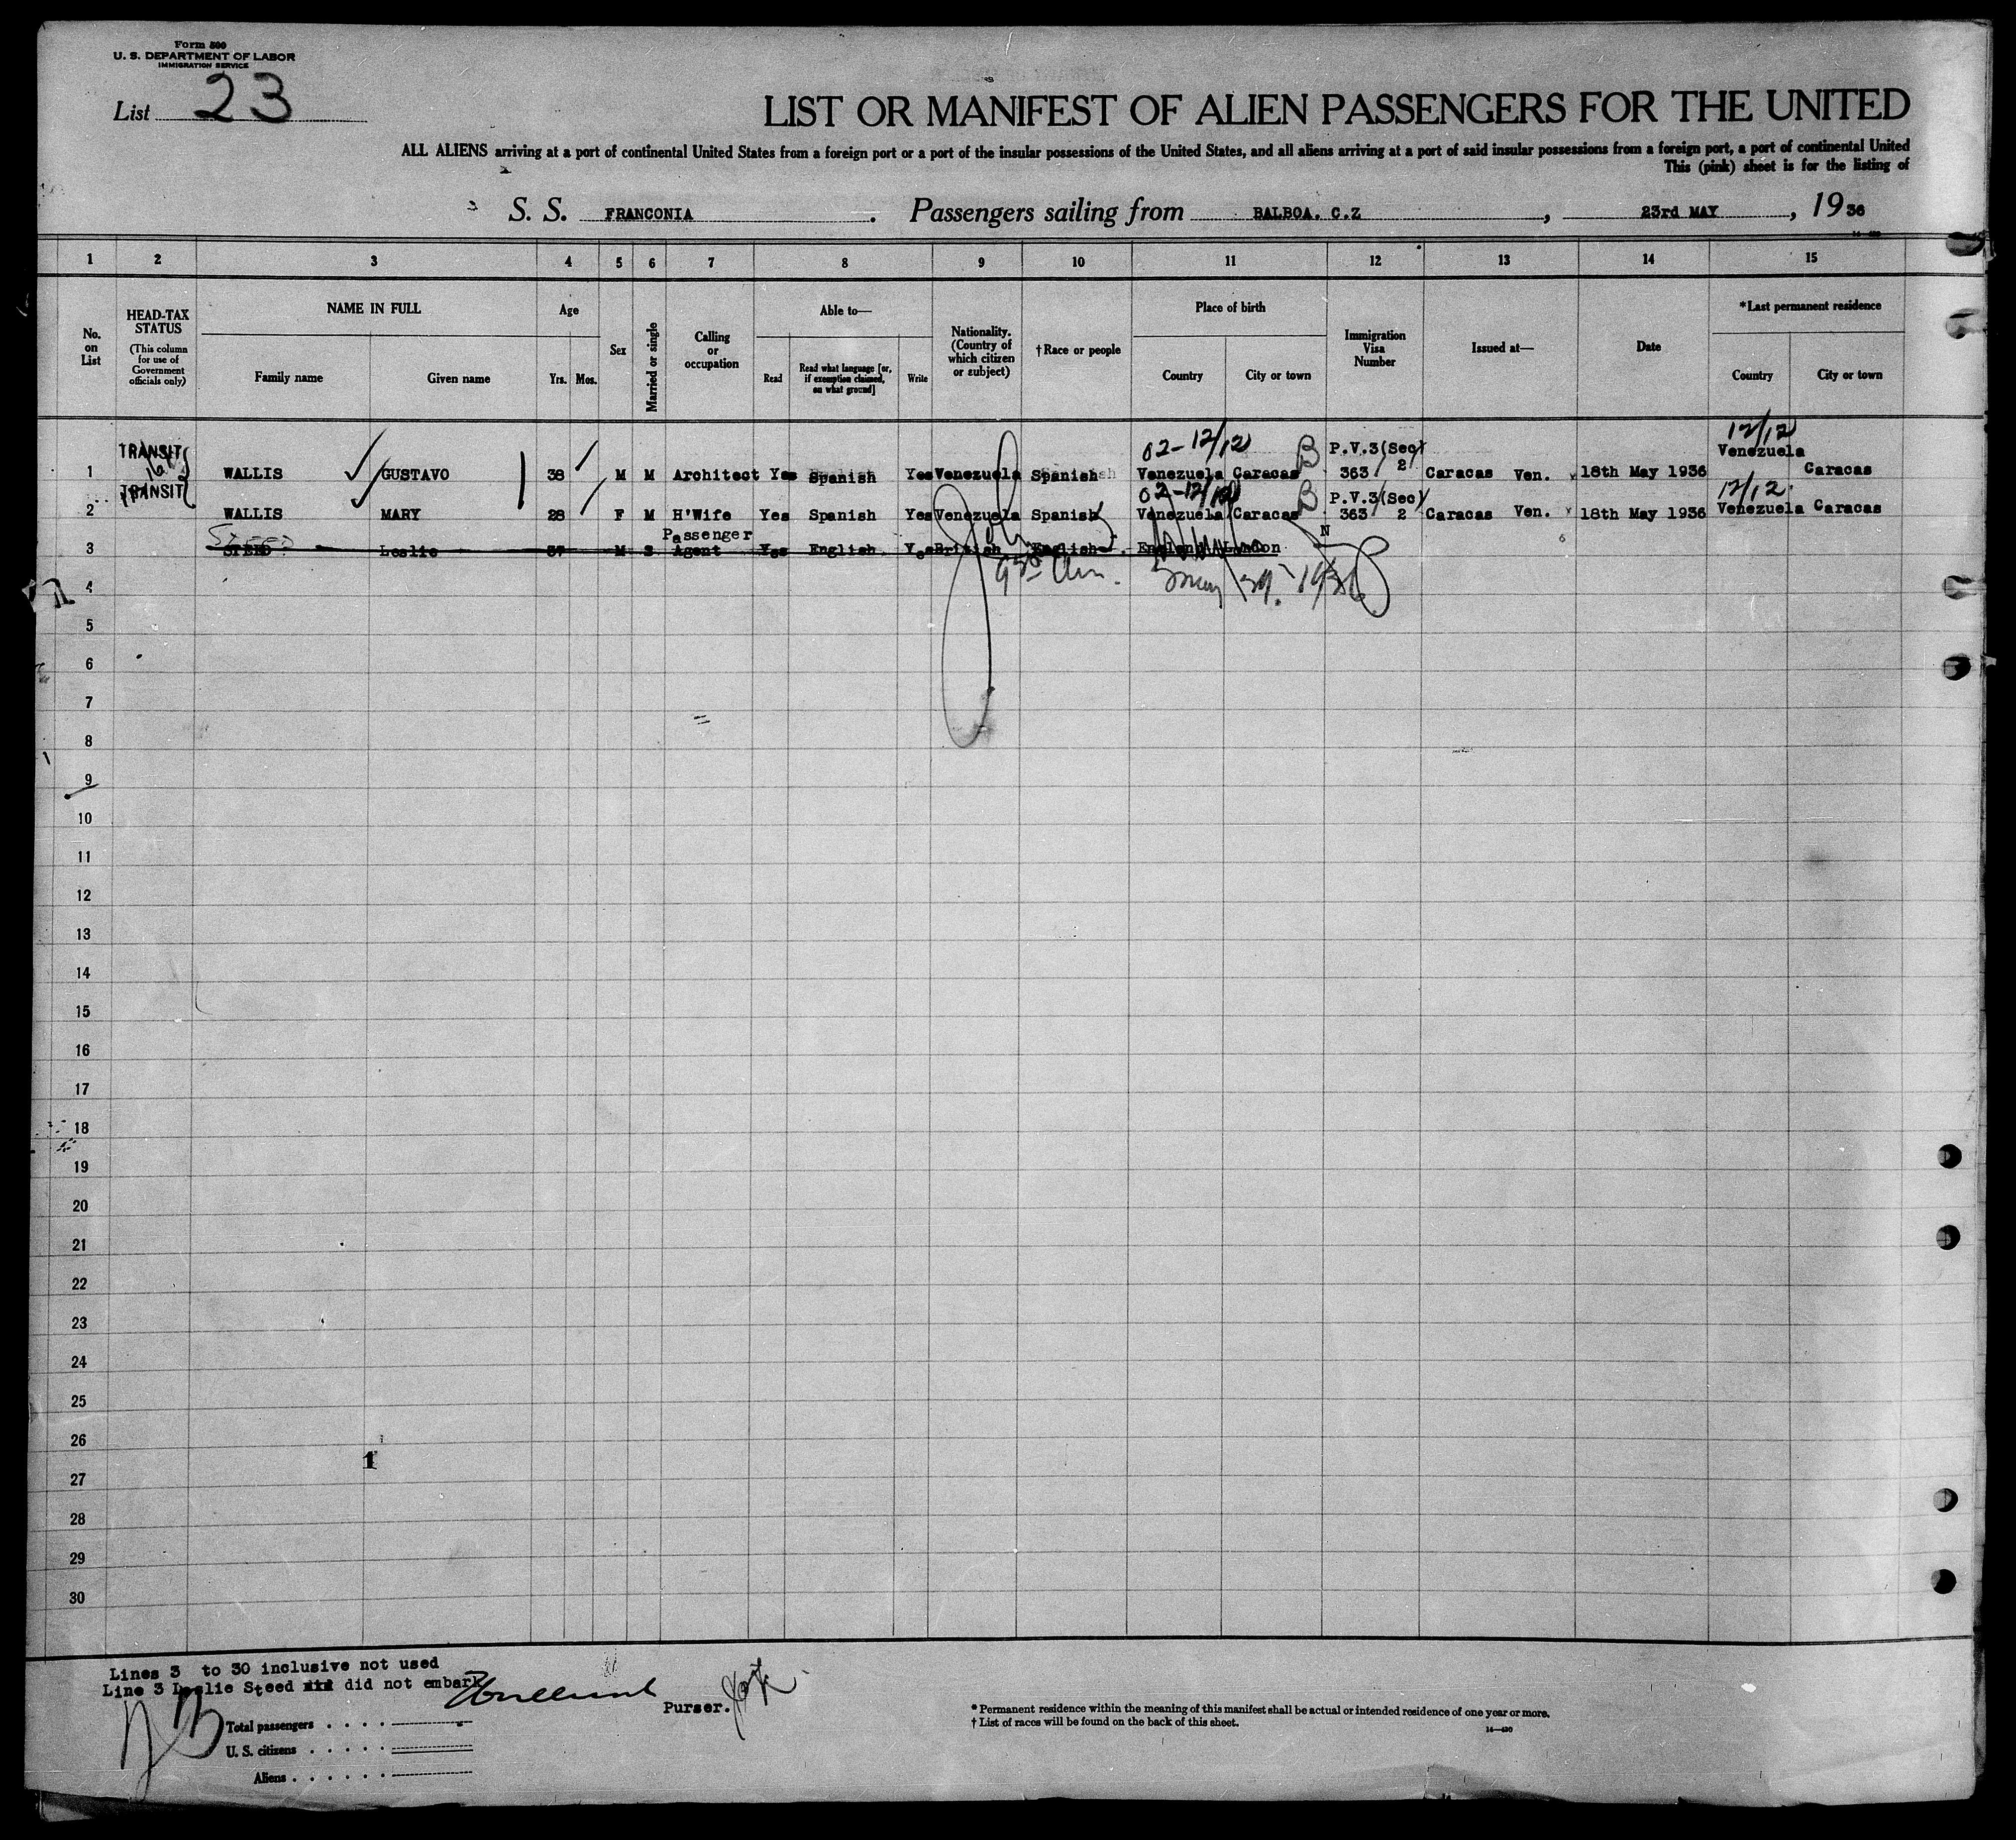 Form 500
U. S. DEPARTMENT OF LABOR
IMMIGRATION SERVICE
List 23
LIST OR MANIFEST OF ALIEN PASSENGERS FOR THE UNITED
ALL ALIENS arriving at a port of continental United States from a foreign port or a port of the insular possessions of the United States, and all aliens arriving at a port of said insular possessions from a foreign port, a port of continental United
This (pink) sheet is for the listing of
S. S. FRANCONIA. Passengers sailing from BALBOA. C.Z, 23rd MAY, 1936
1 2 3 4 5 6 7 8 9 10 11 12 13 14 15
No. on List
HEAD-TAX STATUS
(This column for use of Government officials only)
NAME IN FULL
Family name Given name
Age
Yrs. Mos.
Sex
Married or single
Calling or occupation
Able to—
Read
Read what language [or, if exemption claimed, on what ground]
Write
Nationality. (Country of which citizen or subject)
† Race or people
Place of birth
Country City or town
Immigration Visa Number
Issued at—
Date
*Last permanent residence
Country City or town
TRANSIT 02-12/12 B P.V.3(Sec) 12/12
1 WALLIS GUSTAVO 38 M M Architect Yes Spanish Yes Venezuela Spanish Venezuela Caracas 363 2 Caracas Ven. 18th May 1936 Venezuela Caracas
TRANSIT 02-12/12 B P.V.3(Sec) 12/12
2 WALLIS MARY 28 F M H'Wife Yes Spanish Yes Venezuela Spanish Venezuela Caracas 363 2 Caracas Ven. 18th May 1936 Venezuela Caracas
3 STEED Leslie 37 M S Passenger Agent Yes English Yes British English England London N
4
5
6
7
8
9
10
11
12
13
14
15
16
17
18
19
20
21
22
23
24
25
26
1
27
28
29
30
Lines 3 to 30 inclusive not used
Line 3 Leslie Steed did not embark
Purser.
Total passengers
U. S. citizens
Aliens
* Permanent residence within the meaning of this manifest shall be actual or intended residence of one year or more.
† List of races will be found on the back of this sheet.
14—430